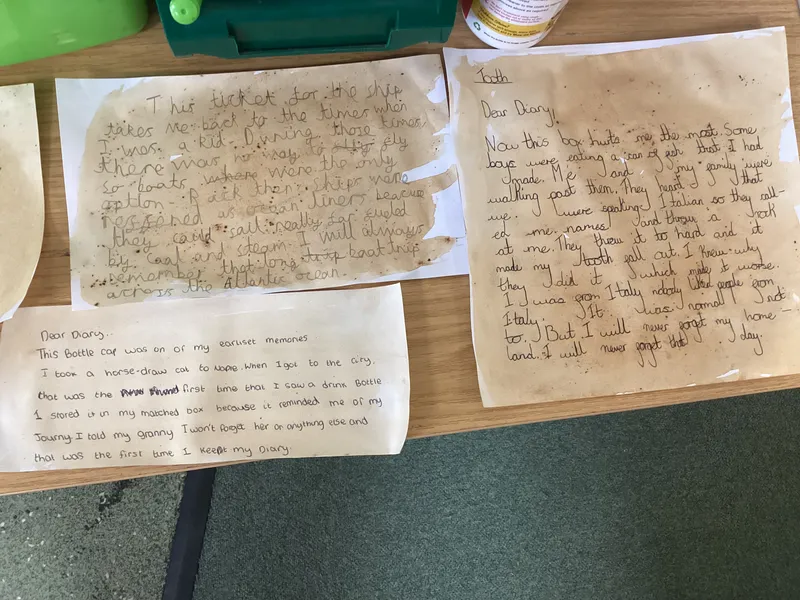 This ticket for the ship
takes me back to the times when
I was a kid. During those times
there was no way to fly
so boats where were the only
option. Back then ships were
reffered as ocean liners beacuse
they could sail really far fueled
by coal and steam. I will always
remember that long boat trip
across the Atlantic ocean.
Dear Diary..
This Bottle cap was on of my earliset memories
I took a horse-draw cat to Nople. When I got to the city.
that was the first time that I saw a drink Bottle
I stored it in my matched box because it reminded me of my
Journy. I told my granny I won't forget her or anything else and
that was the first time I keept my Diary.
Tooth
Dear Diary,
Now this box hurts me the most. Some
boys were eating a can of fish that I had
made. Me and my family were
walking past them. They heard that
we were speaking Italian so they call-
ed me names and threw a rock
at me. They threw it to hard and it
made my tooth fall out. I knew why
they did it which make it worse.
I was from Italy nobody liked people from
Italy. It was normal not
to. But I will never forget my home-
land. I will never forget that day.